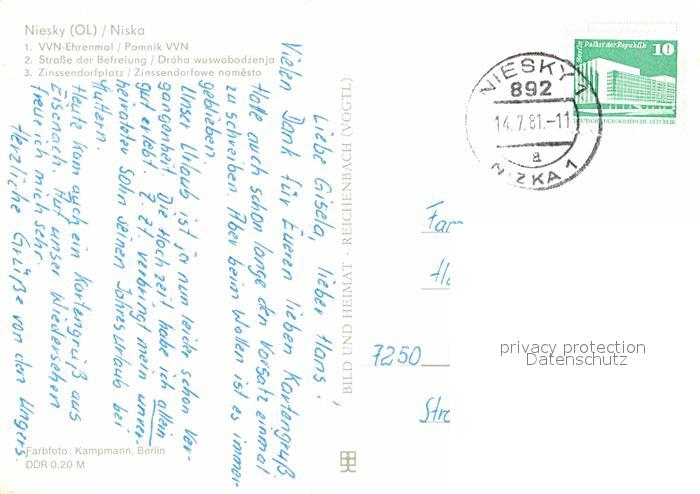 Niesky (OL) / Niska
1. VVN-Ehrenmal / Pomnik VVN
2. Straße der Befreiung / Dróha wuswobodźenja
3. Zinssendorfplatz / Zinssendorfowe naměsto
Liebe Gisela, lieber Hans!
Vielen Dank für Eueren lieben Kartengruß.
Hatte auch schon lange den Vorsatz einmal
zu schreiben. Aber beim Wollen ist es immer
geblieben.
Unser Urlaub ist ja nun leider schon Ver-
gangenheit. Die Hochzeit habe ich allein
gut erlebt. Z. Zt. verbringt mein unver-
heirateter Sohn seinen Jahresurlaub bei
Muttern.
Heute kam auch ein Kartengruß aus
Eisenach. Auf unser Wiedersehen
freu ich mich sehr.
Herzliche Grüße von den Ungers.
Farbfoto: Kampmann, Berlin
DDR 0,20 M
BILD UND HEIMAT · REICHENBACH (VOGTL)
NIESKY 1
892
14.7.81.-11
a
NIZKA 1
Berlin Palast der Republik 10
DEUTSCHE DEMOKRATISCHE REPUBLIK
Fam
7250
Str
privacy protection
Datenschutz